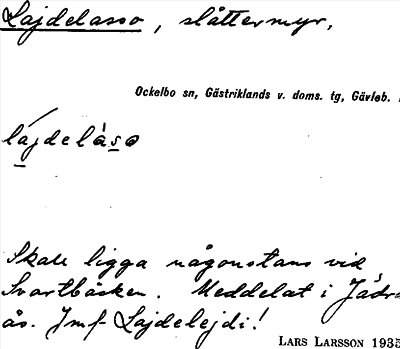 Lajdelasso, slåttermyr,
Ockelbo sn, Gästriklands v. doms. tg, Gävleb.
lájdelàso
Skall ligga någonstans vid
Svartbäcken. Meddelat i Jädra
ås. Jmf Lajdelejdi!
LARS LARSSON 1935